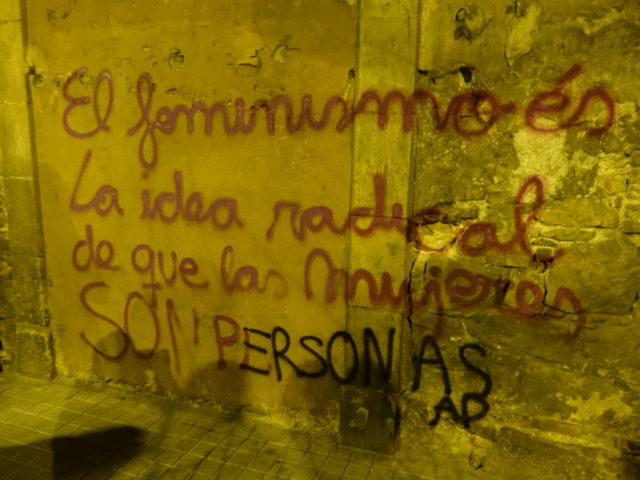 El feminismo és
La idea radical
de que las mujeres
SON PERSONAS
AP